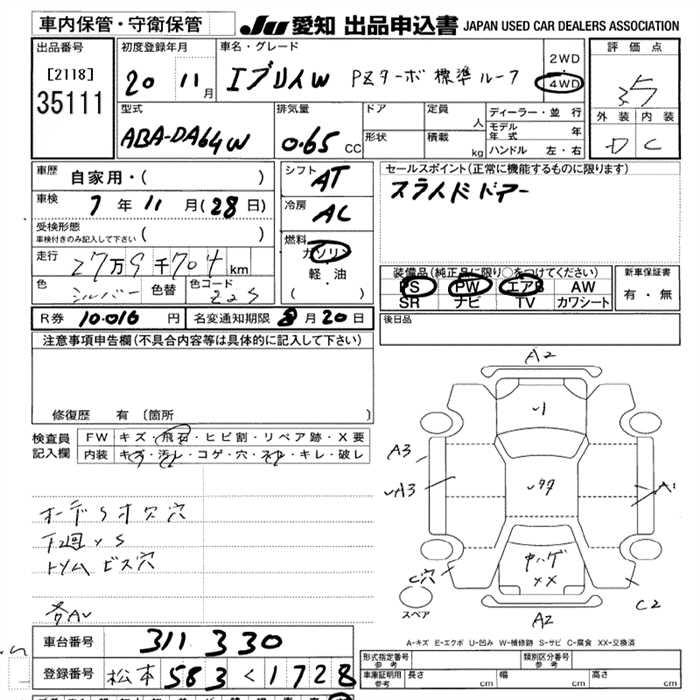 車内保管・守衛保管
JU 愛知 出品申込書 JAPAN USED CAR DEALERS ASSOCIATION
出品番号
[2118]
35111
初度登録年月
20 11月
車名・グレード
エブリイW PZターボ標準ルーフ
2WD
4WD
評価点
3.5
外装 内装
D C
型式
ABA-DA64W
排気量
0.65 CC
ドア
形状
定員 人
積載 kg
ディーラー・並行
モデル年式 年
ハンドル 左・右
車歴 自家用・( )
車検 7年11月(28日)
受検形態
車検付きのみ記入して下さい ( )
走行 27万9千704km
色 シルバー 色替 色コード Z2S
シフト AT
冷房 AC
燃料 ガソリン
軽・油
( )
セールスポイント(正常に機能するものに限ります)
スライドドアー
装備品(純正品に限り○をつけてください)
PS PW エアB AW
SR ナビ TV カワシート
新車保証書
有・無
R券 10.016 円 名変通知期限 8月20日
後日品
注意事項申告欄(不具合内容等は具体的に記入して下さい)
修復歴 有(箇所 )
検査員記入欄
FW キズ・飛石・ヒビ割・リペア跡・X要
内装 キズ・汚レ・コゲ・穴・スレ・キレ・破レ
オーデS オ欠穴
トリム ビス穴
A2
A3
A1
C穴
C2
A2
XX
スペア
A-キズ E-エクボ U-凹み W-補修跡 S-サビ C-腐食 XX-交換済
車台番号 311330
登録番号 松本 583 く 1728
形式指定番号 参考
類別区分番号 参考
車庫証明用 参考 長さ cm 幅 cm 高さ cm